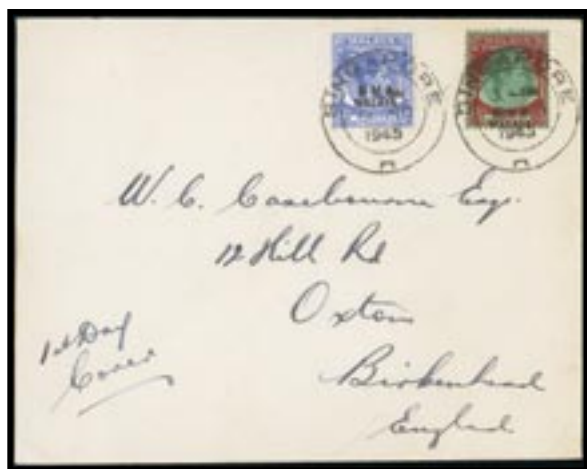 MALAYA
B.M.A.
MALAYA
SINGAPORE
1945
MALAYA
SINGAPORE
1945
W. C. Casebourne Esq.
12 Hill Rd
Oxton
Birkenhead
England
1st Day
Cover